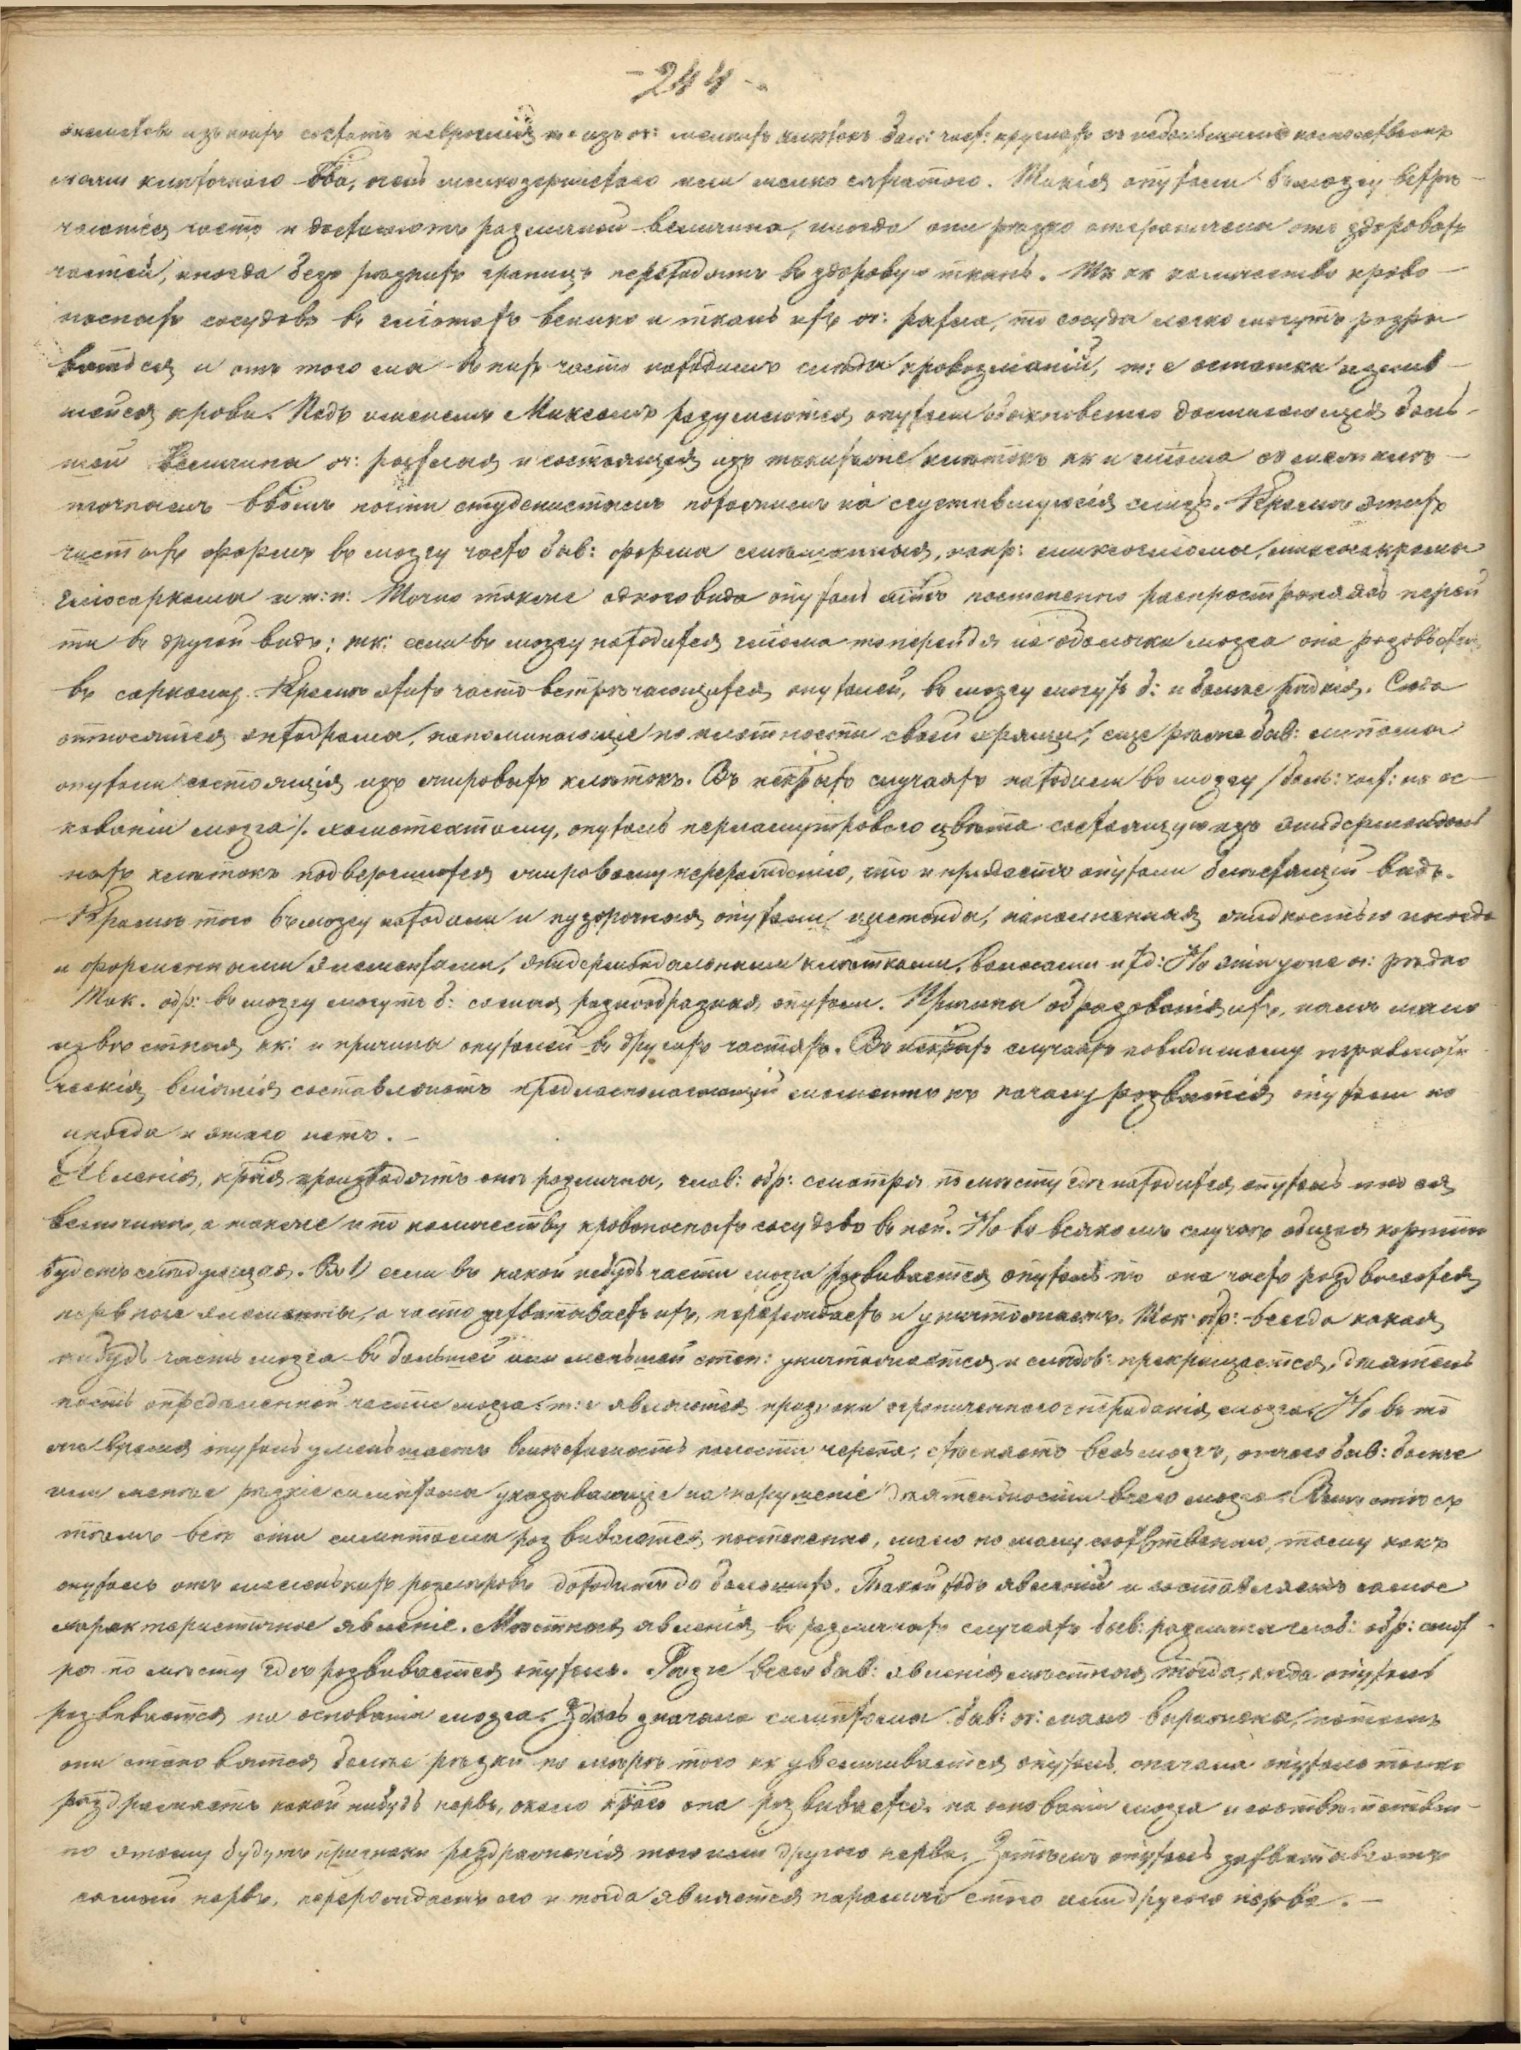 -244-
элементовъ изъ коихъ состоитъ неврогліи т: е изъ оч: мелкихъ клѣтокъ бол: част: круглыхъ съ небольшимъ количествомъ
межклѣточнаго в-ва, или мелкозернистаго или мелко сѣтчатого. Такія опухоли въ мозгу встрѣ-
чаются часто и достигаютъ различной величины, иногда они рѣзко отграничены отъ здоровыхъ
частей, иногда безъ рѣзкихъ границъ переходятъ въ здоровую ткань. Тк кк количество крово-
носныхъ сосудовъ въ гліомахъ велико и ткань ихъ оч: рыхла, то сосуды легко могутъ разры-
ваться и отъ того мы въ нихъ часто находимъ слѣды кровоизліяній, т: е остатки излив-
шейся крови. Подъ именемъ Миксомъ разумѣются опухоли обыкновенно достигающія боль-
шой величины оч: рыхлыя и состоящія изъ такихъ же клѣтокъ кк и гліома съ межклѣ-
точнымъ в-вомъ почти студенистымъ похожимъ на сгустившуюся слизь. Кромѣ этихъ
чистыхъ формъ въ мозгу часто быв: формы смѣшанныя, напр: миксогліома, миксосаркома
гліосаркома и т: п: Точно также одного вида опухоль можетъ постепенно распространяясь перей
ти въ другой видъ; тк: если въ мозгу находится гліома то перейдя на оболочки мозга она разовьется
въ саркому. Кромѣ этихъ часто встрѣчающихся опухолей, въ мозгу могутъ б: и болѣе рѣдкія. Сюда
относятся энхондрома, напоминающіе по плотности своей хрящи, еще рѣже быв: липомы
опухоли состоящія изъ жировыхъ клѣтокъ. Въ нѣкрыхъ случаяхъ находили въ мозгу /бол: част: на ос-
нованіи мозга/. холистеатому, опухоль перламутроваго цвѣта состоящую изъ эпидермоидаль
ныхъ клѣтокъ подвергшихся жировому перерожденію, что и придаетъ опухоли блестящій видъ.
Кромѣ того въ мозгу находили и пузырчатыя опухоли цистоиды, наполненныя жидкостью иногда
и форменными элементами, эпидермоидальными клѣтками, волосами и т д: Но это уже оч: рѣдко
Так. обр: въ мозгу могутъ б: самыя разнообразныя опухоли. Причины образованія ихъ, намъ мало
извѣстныя кк: и причины опухолей въ другихъ частяхъ. Въ нѣкрыхъ случаяхъ повидимому травмати-
ческія вліянія составляютъ предрасполагающій моментъ къ началу развитія опухоли но
иногда и этого нѣтъ.-
Явленія, крыя производятъ они различны, глав: обр: смотря по мѣсту гдѣ находится опухоль и по ея
величинѣ, а также и по количеству кровоносныхъ сосудовъ въ ней. Но во всякомъ случаѣ общая картина
будетъ слѣдующая. Во 1) если въ какой нибудь части мозга развивается опухоль то она часто раздвигаетъ
нервные элементы, а часто захватываетъ ихъ, перерождаетъ и уничтожаетъ. Так: обр:- всегда какая
нибудь часть мозга въ большей или меньшей степ: уничтожается и слѣдов: прекращается дѣятель
ность опредѣленной части мозга. т: е являются признаки ограниченнаго страданія мозга. Но въ то
же время опухоль уменьшаетъ вмѣстимость полости черепа, стѣсняетъ весь мозгъ, отчего быв: болѣе
или менѣе рѣзкіе симптомы указывающіе на нарушеніе дѣятельности всего мозга. Вмѣстѣ съ
тѣмъ всѣ эти симптомы развиваются постепенно, мало по малу соотвѣтственно, тому какъ
опухоль отъ маленькихъ размѣровъ доходитъ до большихъ. Такой родъ явленій и составляетъ самое
характеристичное явленіе. Мѣстныя явленія въ различныхъ случаяхъ быв: различны глав: обр: смот-
ря по мѣсту гдѣ развивается опухоль. Рѣзче всего быв: явленія мѣстныя тогда, когда опухоль
развивается на основаніи мозга. Здѣсь сначала симптомы быв: оч: мало выражены, потомъ
они становятся болѣе рѣзки по мѣрѣ того кк увеличивается опухоль, сначала опухоль только
раздражаетъ какой нибудь нервъ, около краго она развивается на основаніи мозга и соотвѣтствен-
но этому будутъ признаки раздраженія того или другого нерва. Затѣмъ опухоль захватываетъ
самый нервъ, перерождаетъ его и тогда является параличъ того или другого нерва.-